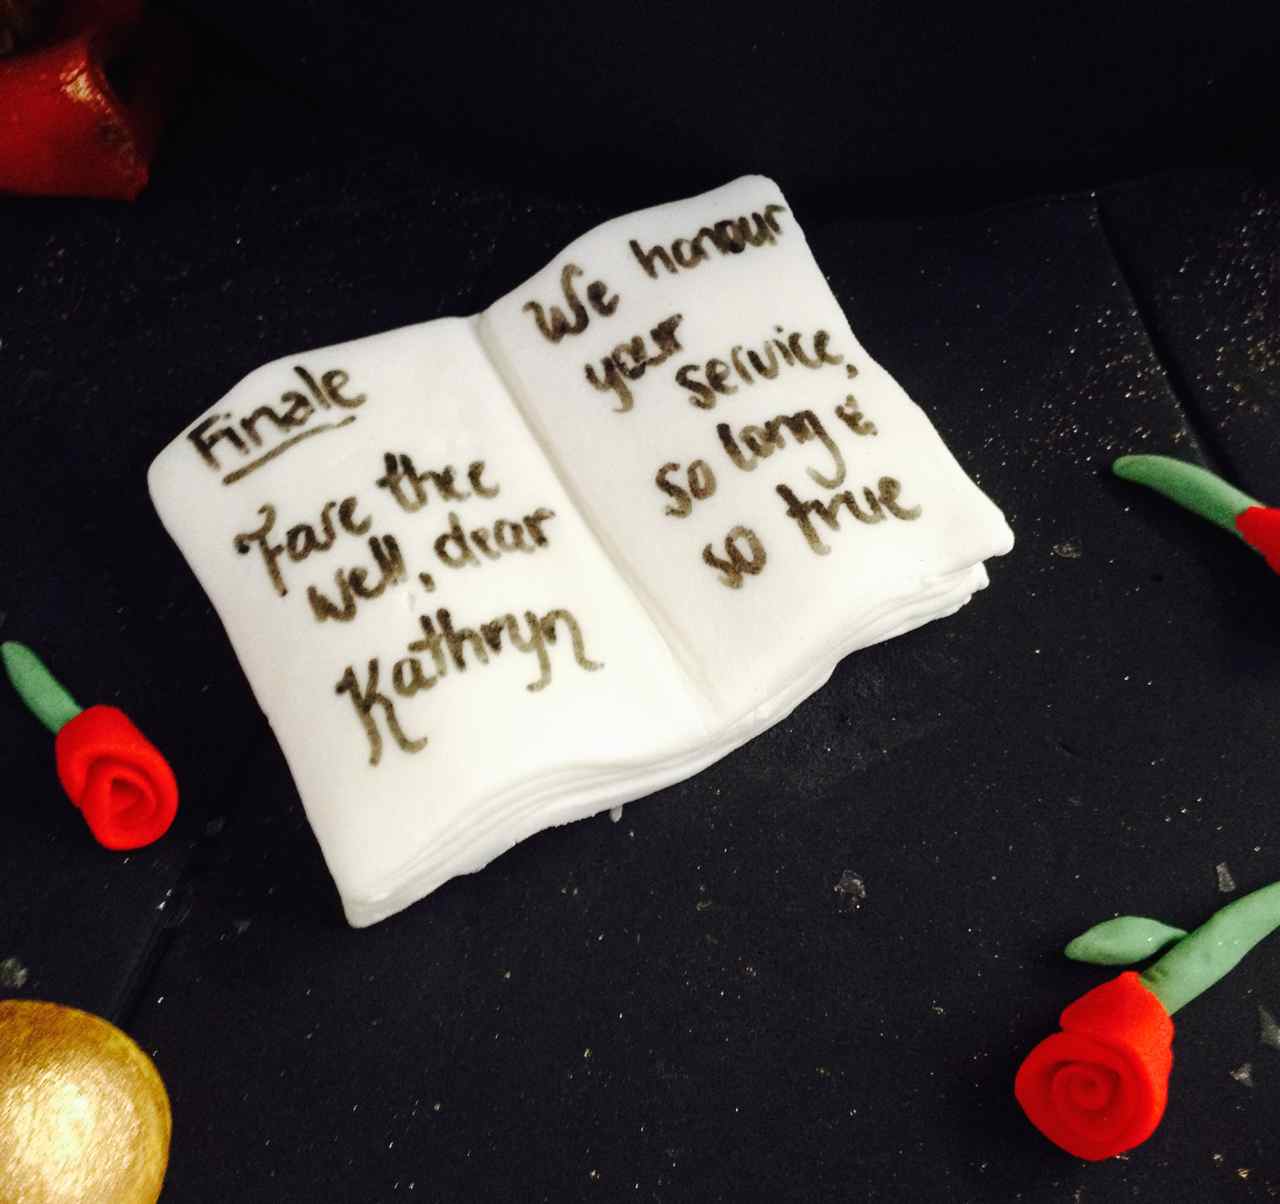 Finale
Fare thee
well, dear
Kathryn
We honour
your
service,
so long &
so true